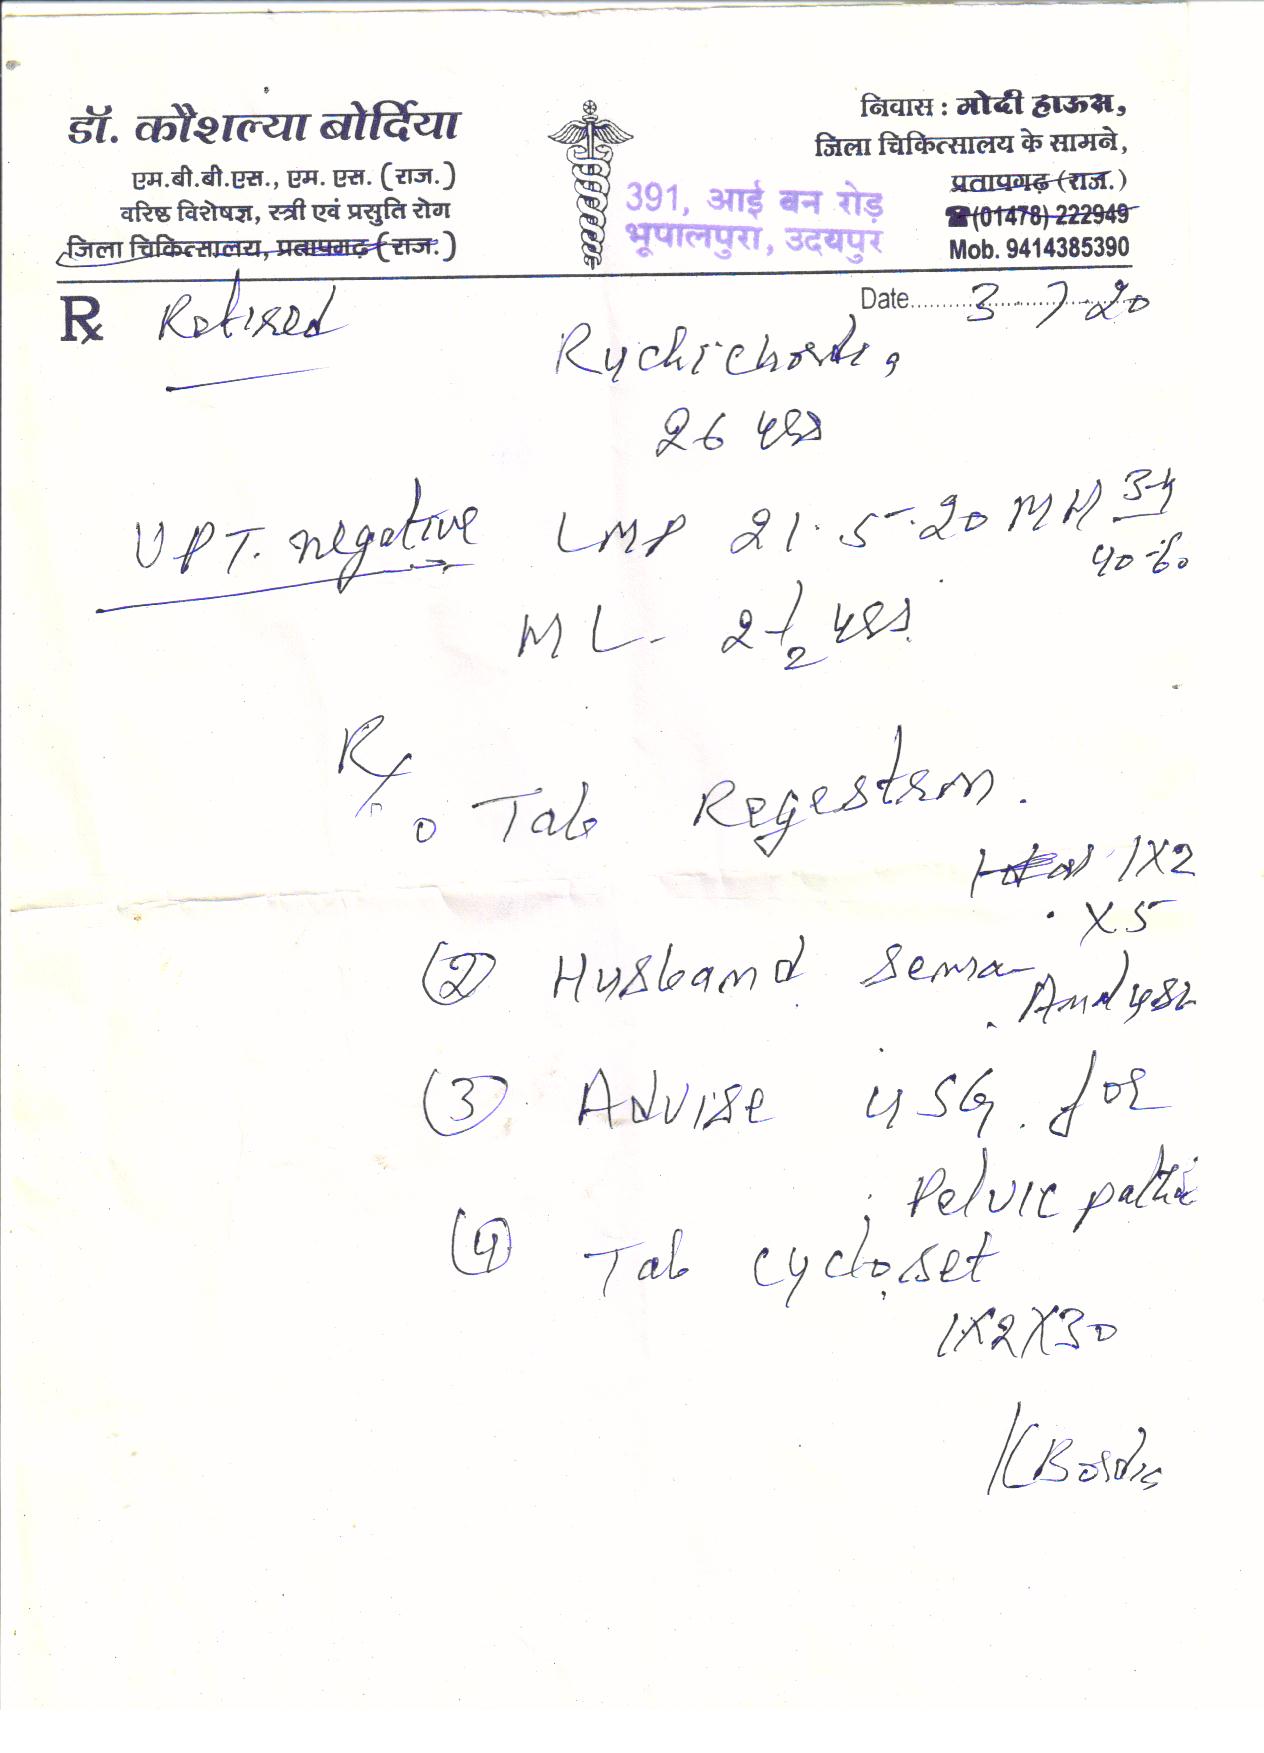 डॉ. कौशल्या बोर्दिया
एम.बी.बी.एस., एम. एस. (राज.)
वरिष्ठ विशेषज्ञ, स्त्री एवं प्रसुति रोग
जिला चिकित्सालय, प्रतापगढ़ (राज.)
391, आई बन रोड़
भूपालपुरा, उदयपुर
निवास : मोदी हाऊस,
जिला चिकित्सालय के सामने,
प्रतापगढ़ (राज.)
☎(01478) 222949
Mob. 9414385390
Rx Retired
Date 3.7.20
26 yrs
UPT. negative LMP 21.5.20 MH 3-4
ML - 2 1/2 yrs
Rx
Tab Regestron.
1X2
X5
(2) Husband
(3) Advise USG. for
Pelvic
(4) Tab cycloset
1X2X30